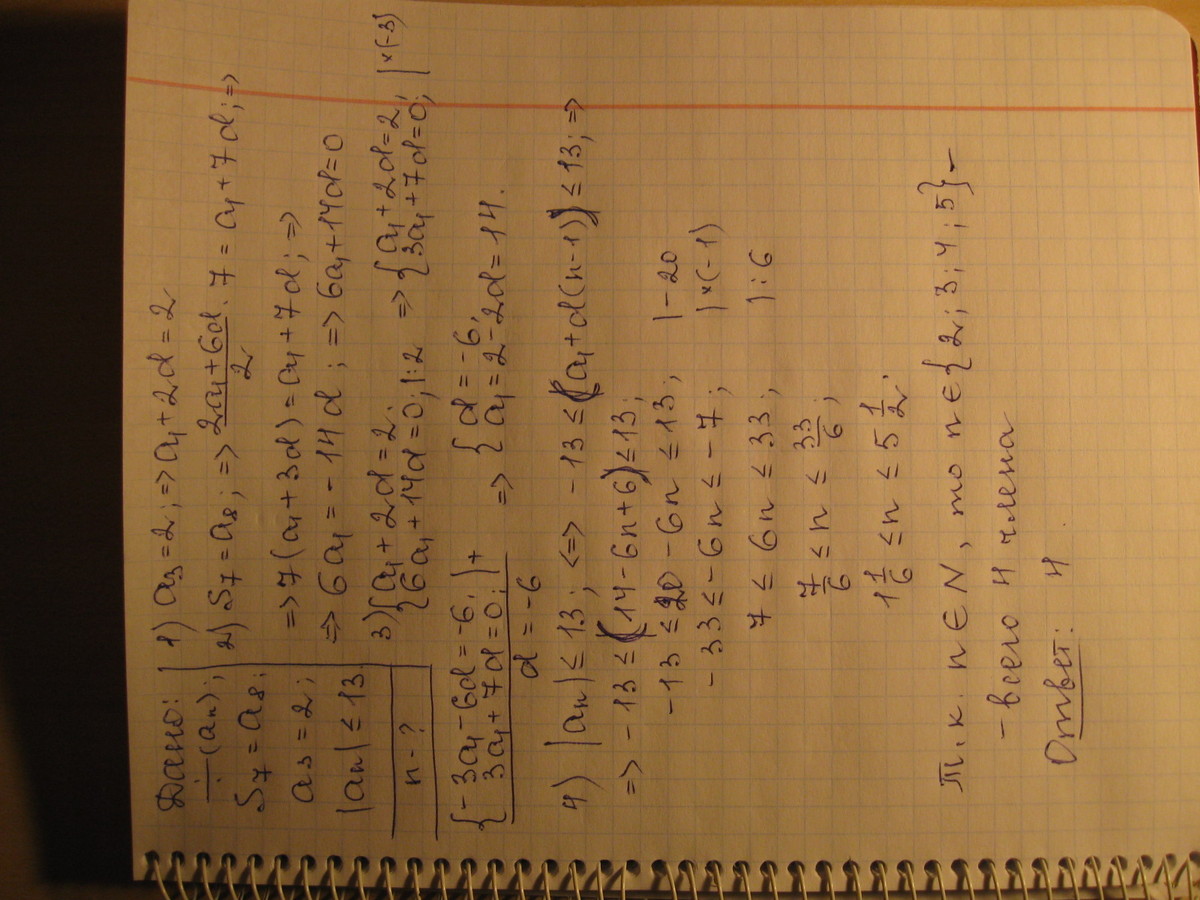 Дано:
÷(aₙ);
S₇ = a₈;
a₃ = 2;
|aₙ| ≤ 13
n - ?
1) a₃ = 2; => a₁ + 2d = 2
2) S₇ = a₈; => (2a₁ + 6d)/2 · 7 = a₁ + 7d; =>
=> 7(a₁ + 3d) = a₁ + 7d; =>
=> 6a₁ = -14d; => 6a₁ + 14d = 0
3) {a₁ + 2d = 2, {6a₁ + 14d = 0; |:2 => {a₁ + 2d = 2, |×(-3) {3a₁ + 7d = 0;
{-3a₁ - 6d = -6, {3a₁ + 7d = 0; |+ => {d = -6, {a₁ = 2 - 2d = 14.
d = -6
4) |aₙ| ≤ 13; <=> -13 ≤ (a₁ + d(n-1)) ≤ 13; =>
=> -13 ≤ (14 - 6n + 6) ≤ 13;
-13 ≤ 20 - 6n ≤ 13; |-20
-33 ≤ -6n ≤ -7; |×(-1)
7 ≤ 6n ≤ 33; |:6
7/6 ≤ n ≤ 33/6;
1 1/6 ≤ n ≤ 5 1/2.
Т.к. n ∈ N, то n ∈ {2; 3; 4; 5} -
- всего 4 члена
Ответ: 4.